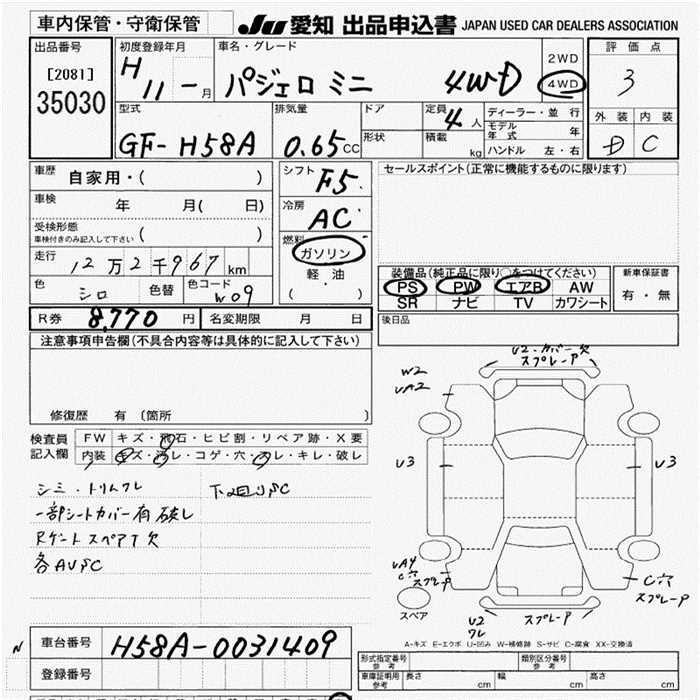 車内保管・守衛保管
JU 愛知 出品申込書 JAPAN USED CAR DEALERS ASSOCIATION
出品番号
[2081]
35030
初度登録年月
H 11 - 月
車名・グレード
パジェロ ミニ 4WD
2WD
4WD
評価点
3
外装 内装
D C
型式
GF- H58A
排気量
0.65 CC
ドア
形状
定員
4 人
積載
kg
ディーラー・並行
モデル年式 年
ハンドル 左・右
車歴
自家用・( )
車検
年 月( 日)
受検形態
車検付きのみ記入して下さい ( )
走行
12万2千967 km
色
シロ
色替
色コード
W09
シフト
F5
冷房
AC
燃料
ガソリン
軽・油
( )
セールスポイント(正常に機能するものに限ります)
装備品(純正品に限り○をつけてください)
PS PW エアB AW
SR ナビ TV カワシート
新車保証書
有・無
R券 8,770 円
名変期限 月 日
後日品
注意事項申告欄(不具合内容等は具体的に記入して下さい)
修復歴 有 〔箇所 〕
検査員記入欄
FW キズ・飛石・ヒビ割・リペア跡・X要
内装 キズ・汚レ・コゲ・穴・スレ・キレ・破レ
シミ・トリムワレ
下廻りSC
一部シートカバー有 破レ
Rゲートスペア T 欠
各AUSC
U2・カバー欠
スプレーP
W2
UA2
U3
U3
UA4
C穴
スプレーP
C穴
スプレーP
スペア
U2
ワレ
スプレーP
A-キズ E-エクボ U-凹み W-補修跡 S-サビ C-腐食 XX-交換済
N
車台番号
H58A-0031409
登録番号
形式指定番号
参考
類別区分番号
参考
車庫証明用
参考
長さ cm
幅 cm
高さ cm